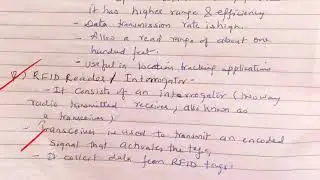 it has higher range & efficiency
- Data transmission rate is high.
- Allow a read range of about one
hundred feet.
- Useful in location tracking applications
2) RFID Reader / Interrogator -
- It consists of an interrogator (two way
radio transmitted receiver, also known as
a transceiver)
- Transceiver is used to transmit an encoded
signal that activates the tag,
- It collect data from RFID tags.